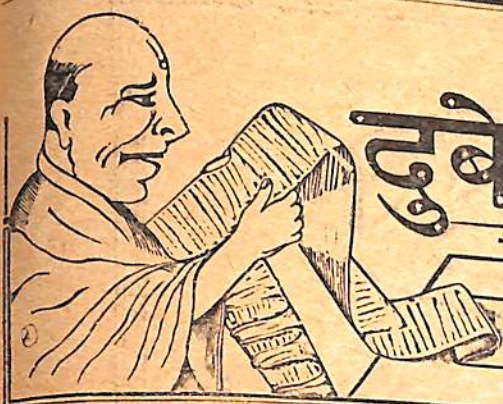 दुबे